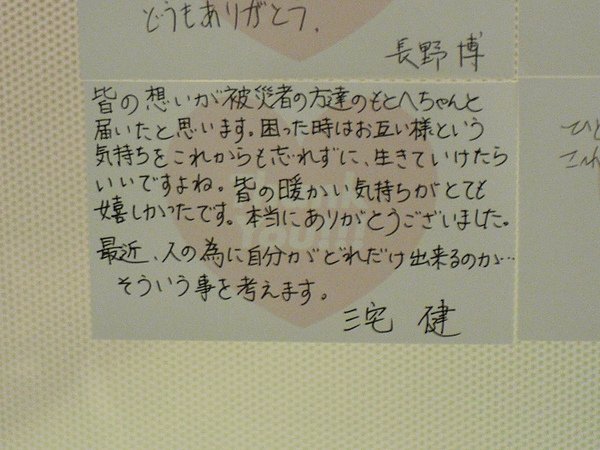 どうもありがとう.
長野 博
皆の想いが被災者の方達のもとへちゃんと
届いたと思います。困った時はお互い様という
気持ちをこれからも忘れずに、生きていけたら
いいですよね。皆の暖かい気持ちがとても
嬉しかったです。本当にありがとうございました。
最近、人の為に自分がどれだけ出来るのか…
そういう事を考えます。
三宅 健